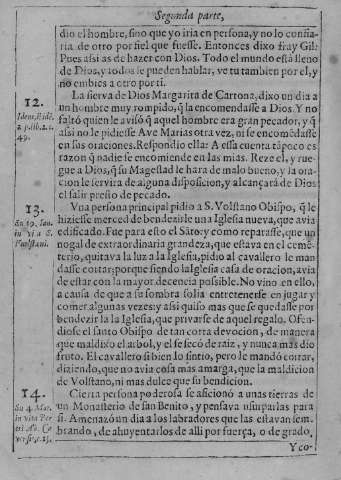 Segunda parte,
dio el hombre, sino que yo iria en persona, y no lo confia-
ria de otro por fiel que fuesse. Entonces dixo fray Gil:
Pues assi as de hazer con Dios. Todo el mundo està lleno
de Dios, y todos le pueden hablar, ve tu tambien por el, y
no embies a otro por ti.
12.
Idem, ibidẽ.
2. p. lib. 2. c.
49.
La sierva de Dios Margarita de Cartona, dixo un dia a
un hombre muy rompido, q̃ la encomendasse a Dios. Y no
faltò quien le avisò q̃ aquel hombre era gran pecador, y q̃
assi no le pidiesse Ave Marias otra vez, ni se encomẽdasse
en sus oraciones. Respondio ella: A essa cuenta tãpoco es
razon q̃ nadie se encomiende en las mias. Reze el, y rue-
gue a Dios, q̃ su Magestad le hara de malo bueno, y la ora-
cion le servira de alguna disposicion, y alcançarà de Dios
el salir presto de pecado.
13.
Vna persona principal pidio a S. Volstano Obispo, q̃ le
hiziesse merced de bendezirle una Iglesia nueva, que avia
edificado. Fue para esto el Sãto: y como reparasse, que un
nogal de extraordinaria grandeza, que estava en el cemẽ-
terio, quitava la luz a la Iglesia, pidio al cavallero le man-
dasse cortar; porque siendo la Iglesia casa de oracion, avia
de estar con la mayor decencia possible. No vino en ello,
a causa de que a su sombra solia entretenerse en jugar y
comer algunas vezes: y assi quiso mas que se quedasse por
bendezir la la Iglesia, que privarse de aquel regalo. Ofen-
diose el santo Obispo de tan corta devocion, de manera
que maldixo el arbol, y el se secò de raiz, y nunca mas dio
fruto. El cavallero si bien lo sintio, pero le mandò cortar,
diziendo, que no avia cosa mas amarga, que la maldicion
de Volstano, ni mas dulce que su bendicion.
14.
Cierta persona poderosa se aficionò a unas tierras de
un Monasterio de san Benito, y pensava usurparlas para
si. Amenazò un dia a los labradores que las estavan sem-
brando, de ahuyentarlos de alli por fuerça, o de grado.
Y co-